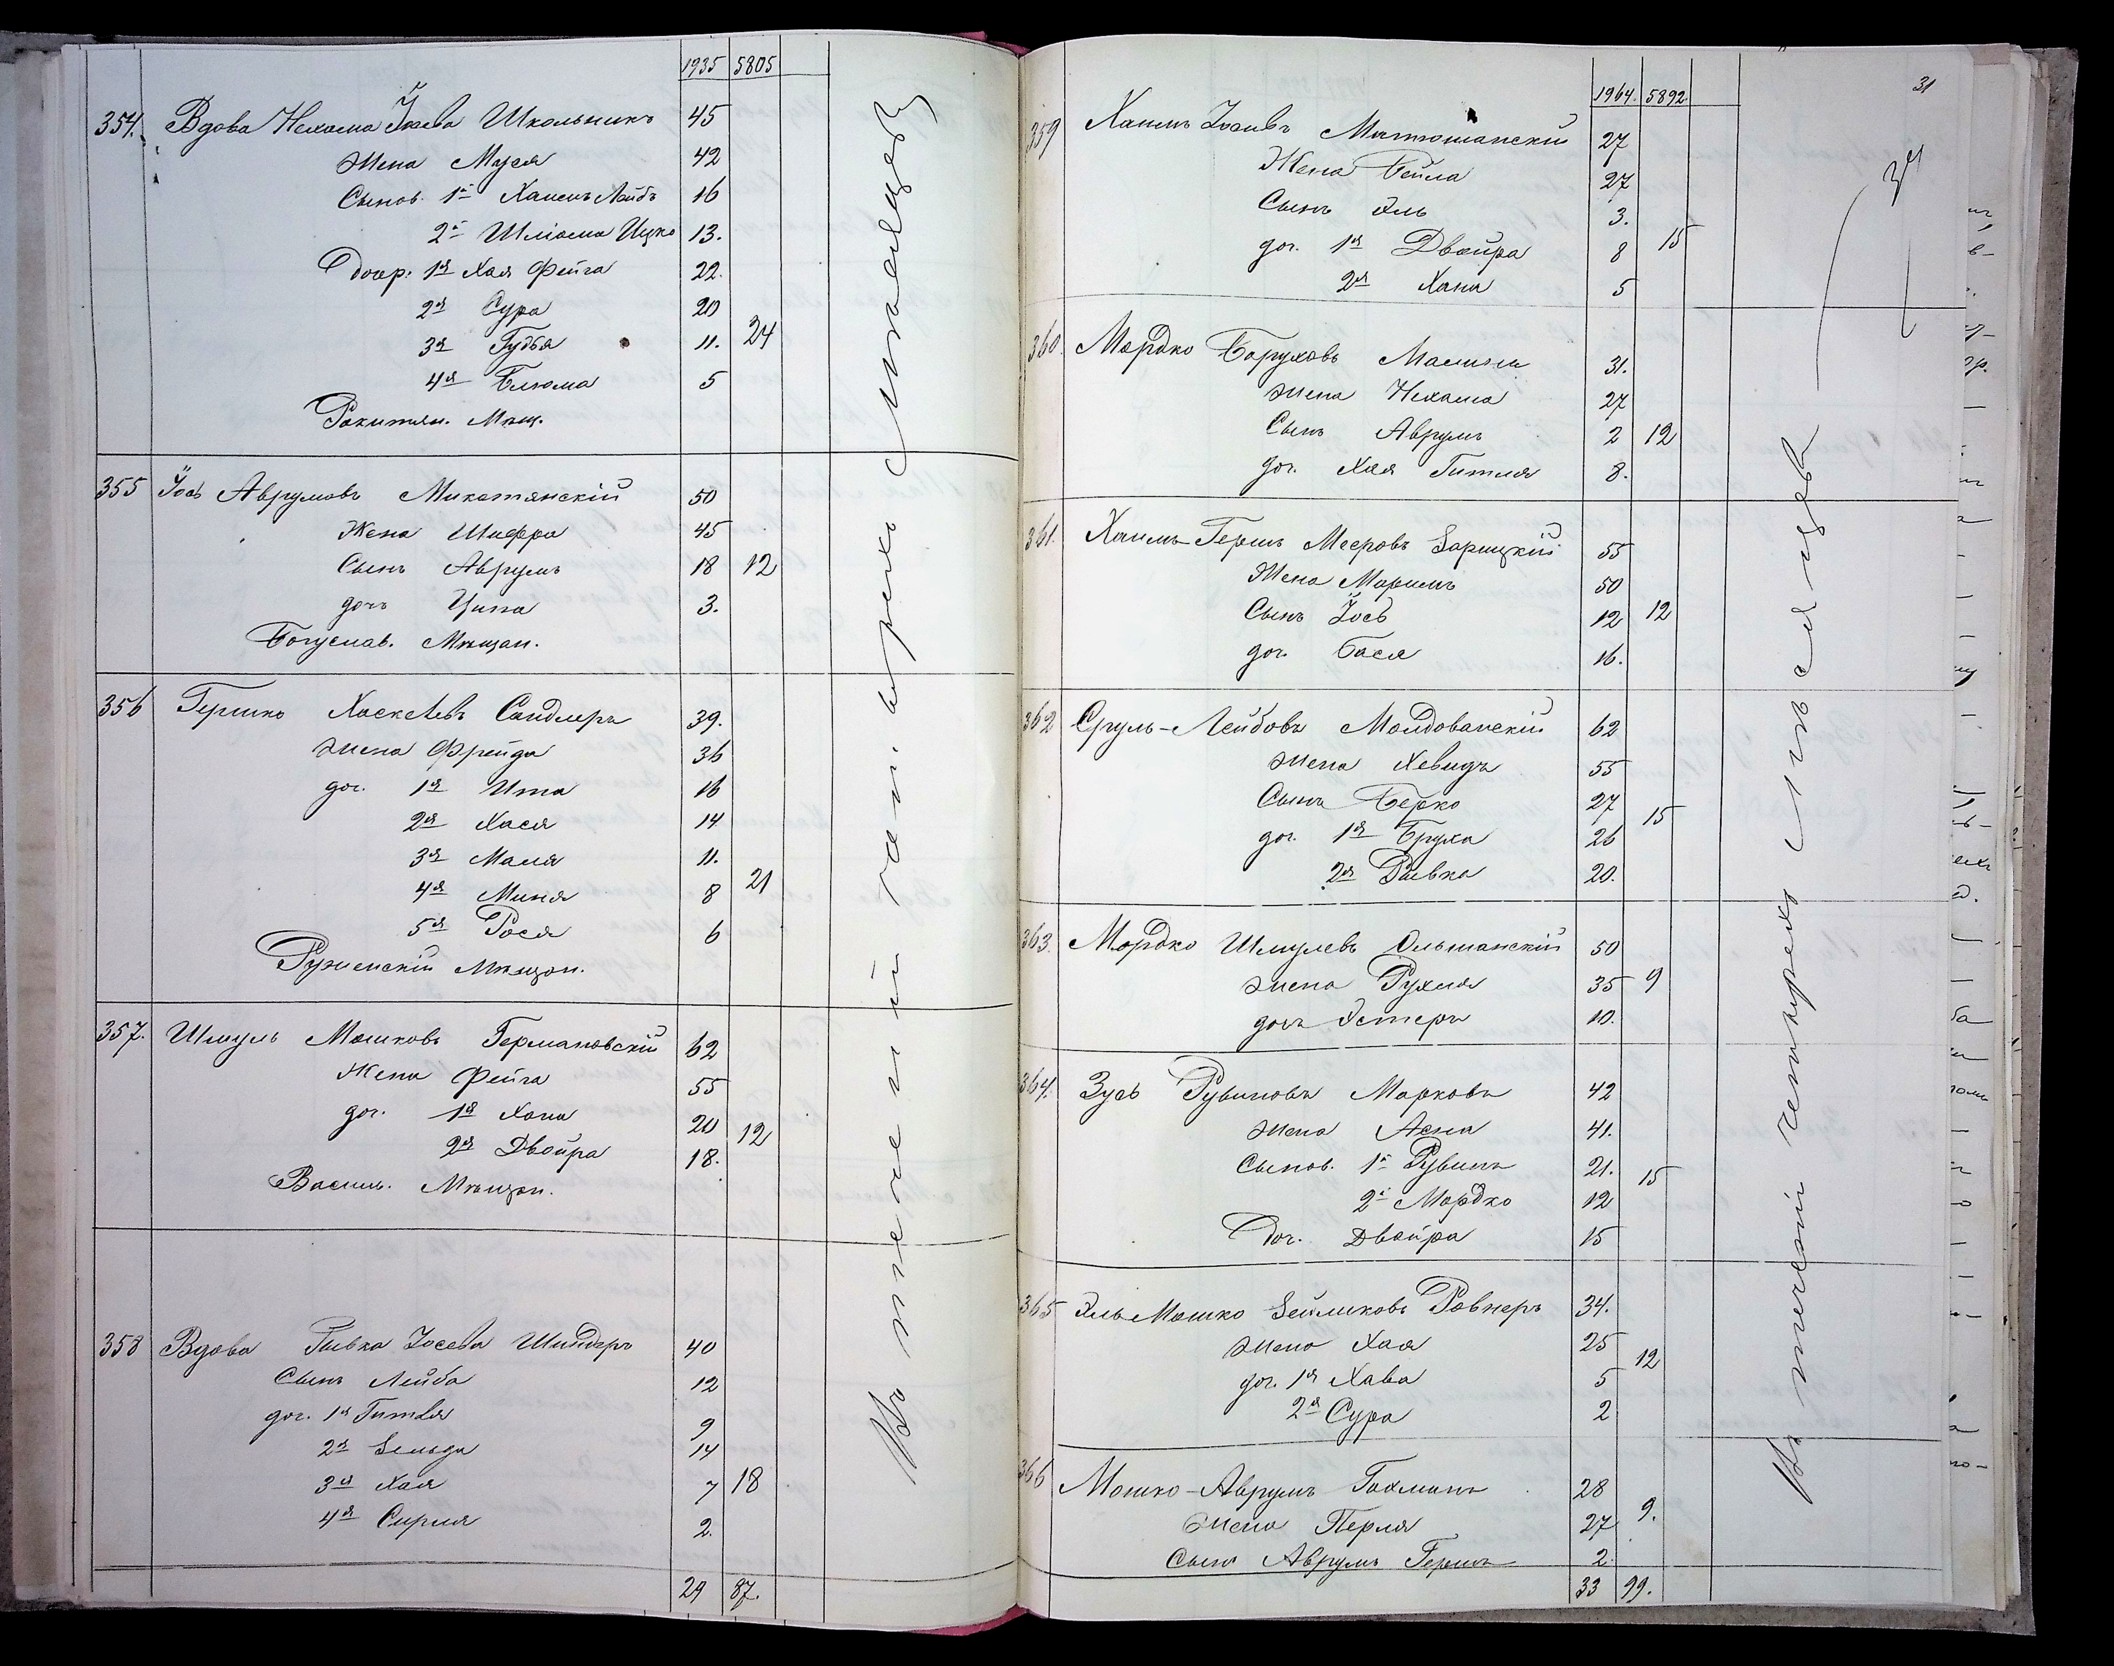 1935 5805
354. Вдова Нехама Іосева Школьникъ 45
жена Муся 42
Сынов. 1й Хаимъ Лейбъ 16
2й Шліома Ицко 13.
Дочер: 1я Хая Фейга 22.
2я Сура 20
3я Гудья 11. 24
4я Блюма 5
Рокитян. Мѣщ.
355 Іось Аврумовъ Микотянскій 50
Жена Шифра 45
Сынъ Аврумъ 18 12
дочь Ципа 3.
Богуслав. Мѣщан.
356 Гершко Хаскелевъ Сандлеръ 39.
жена Фрейда 36
доч. 1я Ита 16
2я Хася 14
3я Маля 11.
4я Миня 8 21
5я Рося 6
Ружинскій Мѣщан.
357. Шмуль Мошковъ Германовскій 62
Жена Фейга 55
доч. 1я Хана 20 12
2я Двойра 18.
Васильк. Мѣщан.
358 Вдова Ривка Іосева Шнидеръ 40
Сынъ Лейба 12
доч. 1я Гитля 9
2я Зельда 14
3я Хая 7 18
4я Сирля 2.
29 87.
Въ теченіи четырехъ мѣсяцевъ
31
1964. 5892.
359 Хаимъ Іосивъ Матюшанскій 27
Жена Бейла 27
Сынъ Эль 3.
доч. 1я Двойра 8 15
2я Хана 5
360 Мордко Боруховъ Малинъ 31.
жена Нехама 27
Сынъ Аврумъ 2 12
доч. Хая Гитля 8.
361. Хаимъ-Гершъ Мееровъ Зарицкій 55
Жена Маримъ 50
Сынъ Іось 12 12
доч. Бася 16.
362 Сруль-Лейбовъ Молдованскій 62
жена Хевидъ 55
Сынъ Берко 27 15
доч. 1я Бруха 26
2я Ривка 20.
363. Мордко Шмулевъ Ольшанскій 50
жена Рухля 35 9
дочь Эстеръ 10.
364. Зусь Рувиновъ Марковъ 42
жена Асна 41.
Сынов. 1й Рувинъ 21. 15
2й Мордко 12
Доч. Двойра 15
365 Эль Мошко Зейликовъ Ровнеръ 34.
жена Хая 25 12
доч. 1я Хава 5
2я Сура 2
366 Мошко-Аврумъ Гохманъ 28
жена Перля 27 9.
Сынъ Аврумъ Гершъ 2.
33 99.
Въ теченіи четырехъ мѣсяцевъ